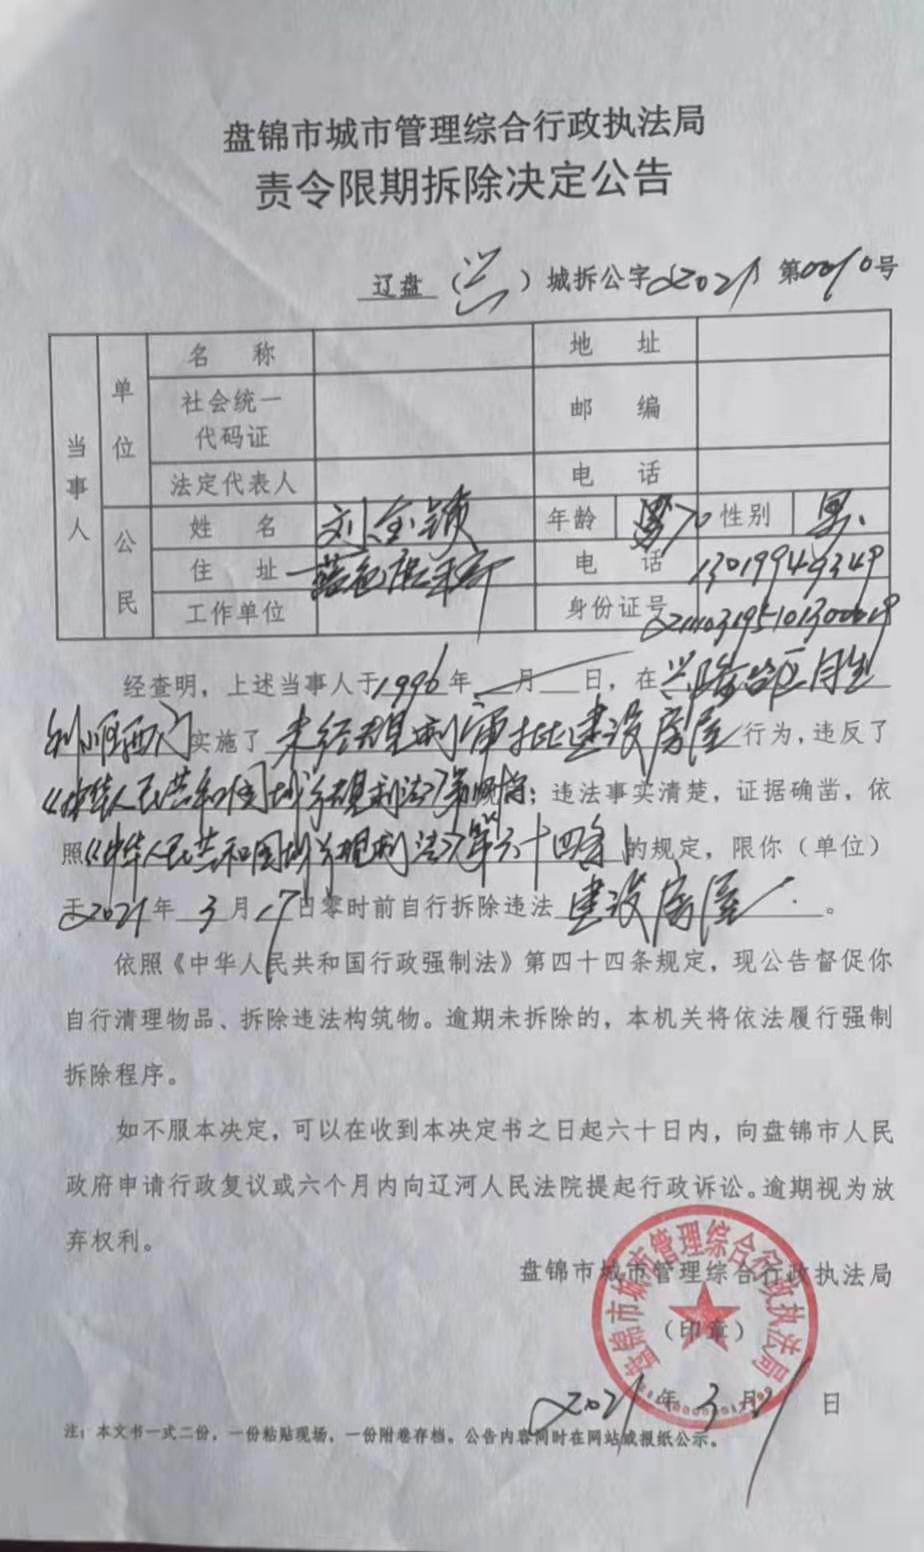 盘锦市城市管理综合行政执法局
责令限期拆除决定公告
辽盘（兴）城拆公字2021第0010号
当事人
单位
名 称
地 址
社会统一代码证
邮 编
法定代表人
电 话
公民
姓 名 刘金颖 年龄 70 性别 男
住 址 电 话 13019949349
工作单位 身份证号
经查明，上述当事人于1996年 月 日，在兴隆台区
实施了未经规划审批建设房屋行为，违反了
《中华人民共和国城乡规划法》第四十条；违法事实清楚，证据确凿，依
照《中华人民共和国城乡规划法》第六十四条的规定，限你（单位）
于2021年3月17日零时前自行拆除违法建设房屋。
依照《中华人民共和国行政强制法》第四十四条规定，现公告督促你
自行清理物品、拆除违法构筑物。逾期未拆除的，本机关将依法履行强制
拆除程序。
如不服本决定，可以在收到本决定书之日起六十日内，向盘锦市人民
政府申请行政复议或六个月内向辽河人民法院提起行政诉讼。逾期视为放
弃权利。
盘锦市城市管理综合行政执法局
盘锦市城市管理综合行政执法局
（印章）
2021年3月 日
注：本文书一式二份，一份粘贴现场，一份附卷存档。公告内容同时在网站或报纸公示。